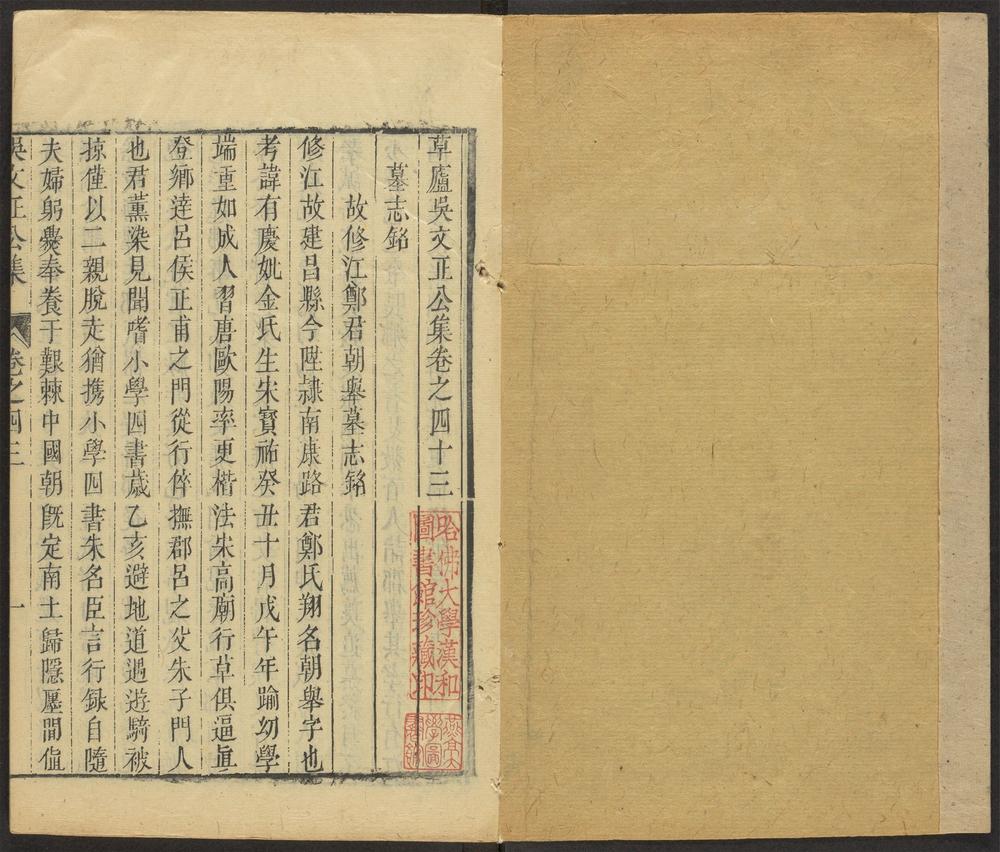 草廬吳文正公集卷之四十三
墓志銘
故修江鄭君朝舉墓志銘
修江故建昌縣今陞隷南康路君鄭氏翔名朝舉字也
考諱有慶妣金氏生宋寳祐癸丑十月戊午年踰幼學
端重如成人習唐歐陽率更楷法宋高廟行草俱逼眞
登鄉達呂侯正甫之門從行倅撫郡呂之父朱子門人
也君薰染見聞嗜小學四書歲乙亥避地道遇遊騎被
掠僅以二親脫走猶携小學四書朱名臣言行録自隨
夫婦躬爨奉養于艱棘中國朝旣定南土歸隱廛間傎
吳文正公集
卷之四三
一
哈佛大學漢和
圖書館珍藏印
燕京
學圖